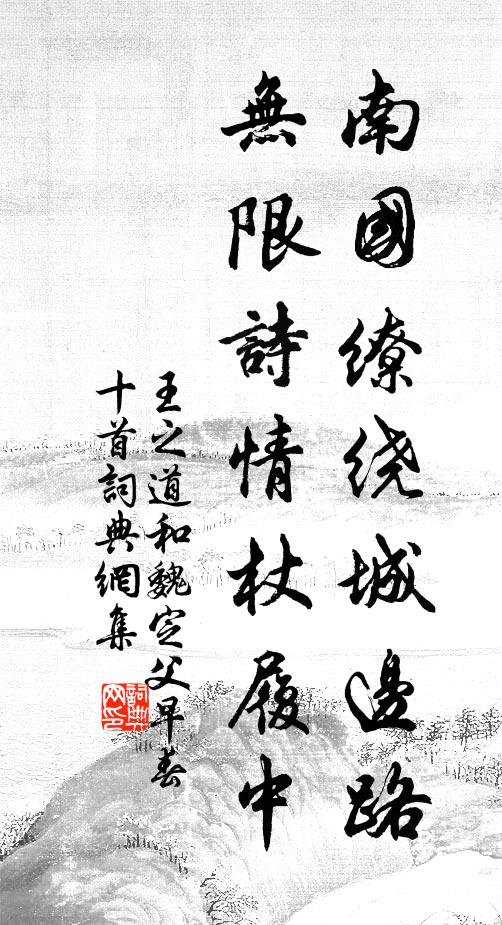 南國繚绕城邊路
無限詩情杖履中
王之道和魏定父早春
十首詞典網集
詞典
网印